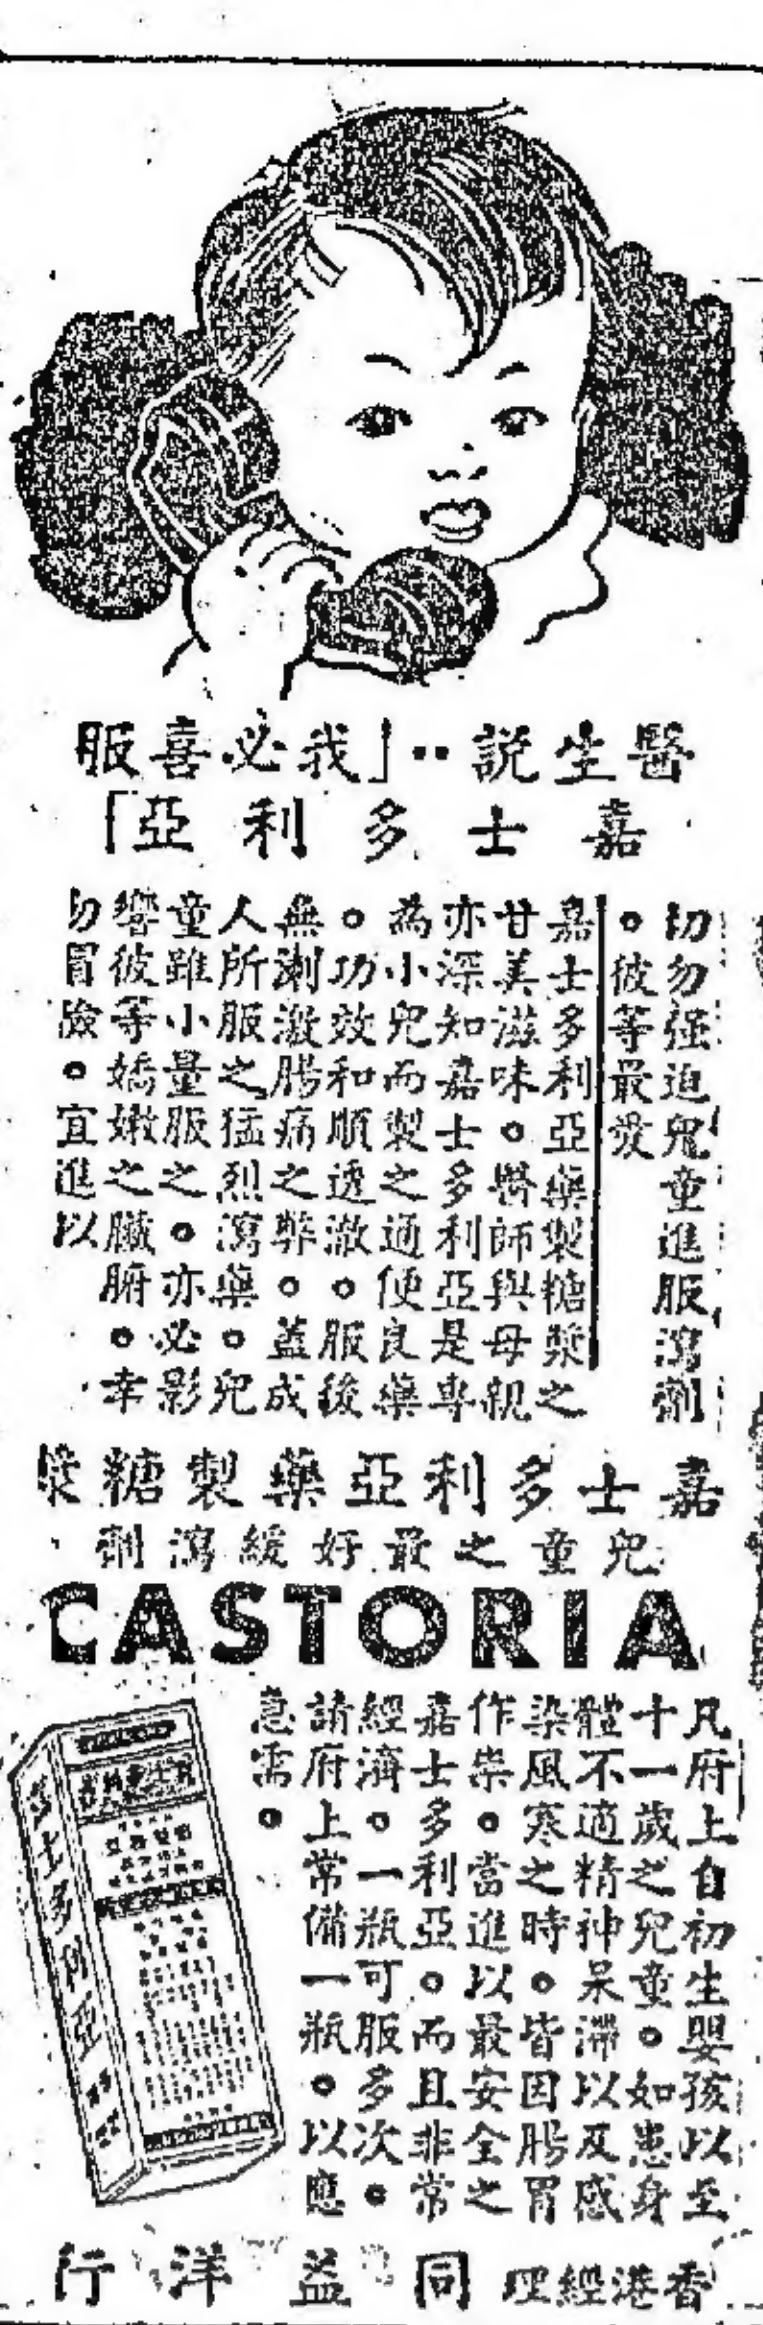 醫生説：「我必喜服
嘉士多利亞」
切勿强迫兒童進服瀉劑
。彼等最愛
嘉士多利亞藥製糖漿之
甘美滋味。醫師與母親
亦深知嘉士多利亞是專
為小兒而製之通便良藥
。功效和順透澈。服後
無刺激腸痛之弊。蓋成
人所服之猛烈瀉藥。兒
童雖小量服之。亦必影
響彼等嬌嫩之臟腑。幸
勿冒險。宜進以
嘉士多利亞藥製糖漿
兒童之最好緩瀉劑
CASTORIA
凡府上自初生嬰孩以至
十一歲之兒童。如患身
體不適精神呆滯以及感
染風寒之時。皆因腸胃
作祟。當進以最安全之
嘉士多利亞。而且非常
經濟。一瓶可服多次。
請府上常備一瓶。以應
急需。
嘉士多利亞
香港經理同益洋行